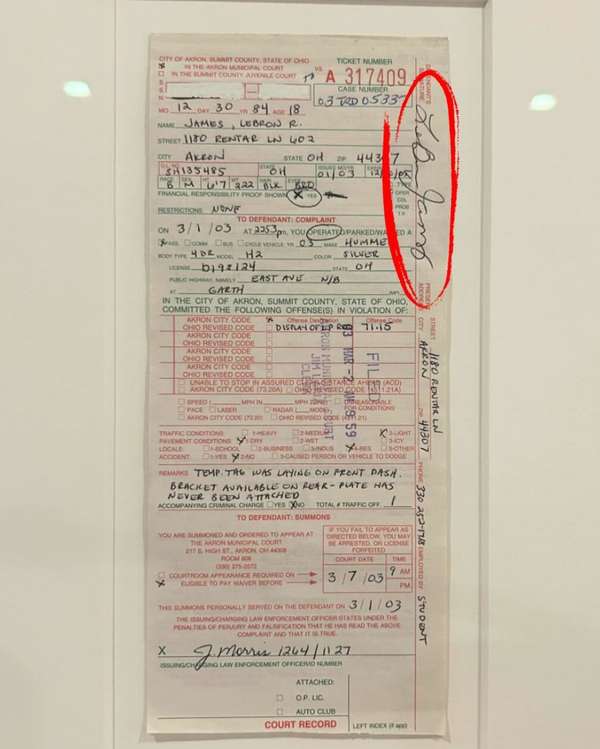 CITY OF AKRON, SUMMIT COUNTY, STATE OF OHIO
IN THE AKRON MUNICIPAL COURT
IN THE SUMMIT COUNTY JUVENILE COURT
TICKET NUMBER
VS. A 317409
CASE NUMBER
03 TRD 0533
MO 12 DAY 30 YR 84 AGE 18
NAME JAMES, LEBRON R.
STREET 1180 RENTAR LN 602
CITY AKRON STATE OH ZIP 443 7
SH135485 STATE OH 01/03
B M 6'7 222 BLK BRO
FINANCIAL RESPONSIBILITY PROOF SHOWN X YES
RESTRICTIONS NONE
TO DEFENDANT: COMPLAINT
ON 3/1/03 AT 2253 pm, YOU OPERATED/PARKED/WALKED A
PASS. COMM BUS CYCLE VEHICLE: YR 03 MAKE HUMME
BODY TYPE 4DR MODEL H2 COLOR SILVER
LICENSE D198124 STATE OH
PUBLIC HIGHWAY, NAMELY EAST AVE N/B
AT GARTH
IN THE CITY OF AKRON, SUMMIT COUNTY, STATE OF OHIO,
COMMITTED THE FOLLOWING OFFENSE(S) IN VIOLATION OF:
AKRON CITY CODE Offense Description Offense Code
OHIO REVISED CODE DISPLAY OF LP 71.15
AKRON CITY CODE
OHIO REVISED CODE
AKRON CITY CODE
OHIO REVISED CODE
AKRON CITY CODE
OHIO REVISED CODE
UNABLE TO STOP IN ASSURED CLEAR DISTANCE AHEAD (ACD)
AKRON CITY CODE (73.20A) OHIO REVISED CODE
SPEED ( MPH IN MPH ZONE) UNREASONABLE
PACE LASER RADAR ( MODE) CONDITIONS
AKRON CITY CODE (73.20) OHIO REVISED CODE
FILED
AKRON MUNICIPAL COURT
CLERK
TRAFFIC CONDITIONS 1-HEAVY 2-MEDIUM X 3-LIGHT
PAVEMENT CONDITIONS 1-DRY 2-WET 3-ICY
LOCALE: 1-SCHOOL 2-BUSINESS 3-INDUS 4-RES 5-OTHER
ACCIDENT: 1-YES 2-NO 3-CAUSED PERSON OR VEHICLE TO DODGE
REMARKS TEMP. TAG WAS LAYING ON FRONT DASH.
BRACKET AVAILABLE ON REAR-PLATE HAS
NEVER BEEN ATTACHED
ACCOMPANYING CRIMINAL CHARGE YES X NO TOTAL # TRAFFIC OFF. 1
TO DEFENDANT: SUMMONS
YOU ARE SUMMONED AND ORDERED TO APPEAR AT
THE AKRON MUNICIPAL COURT.
217 S. HIGH ST., AKRON, OH 44308
ROOM 808
IF YOU FAIL TO APPEAR AS
DIRECTED BELOW, YOU MAY
BE ARRESTED, OR LICENSE
FORFEITED
COURT DATE TIME
3/7/03 9 AM
PM
COURTROOM APPEARANCE REQUIRED ON
X ELIGIBLE TO PAY WAIVER BEFORE
THIS SUMMONS PERSONALLY SERVED ON THE DEFENDANT ON 3/1/03
THE ISSUING/CHARGING LAW ENFORCEMENT OFFICER STATES UNDER THE
PENALTIES OF PERJURY AND FALSIFICATION THAT HE HAS READ THE ABOVE
COMPLAINT AND THAT IT IS TRUE.
X J. Morris 1264/1127
ISSUING/CHARGING LAW ENFORCEMENT OFFICER/ID NUMBER
ATTACHED:
O.P. LIC.
AUTO CLUB
COURT RECORD LEFT INDEX (if app)
DEFENDANT'S SIGNATURE LeBron James
PRESENT ADDRESS
STREET 1180 RENTAR LN
CITY AKRON ZIP 44307
EMPLOYED BY STUDENT